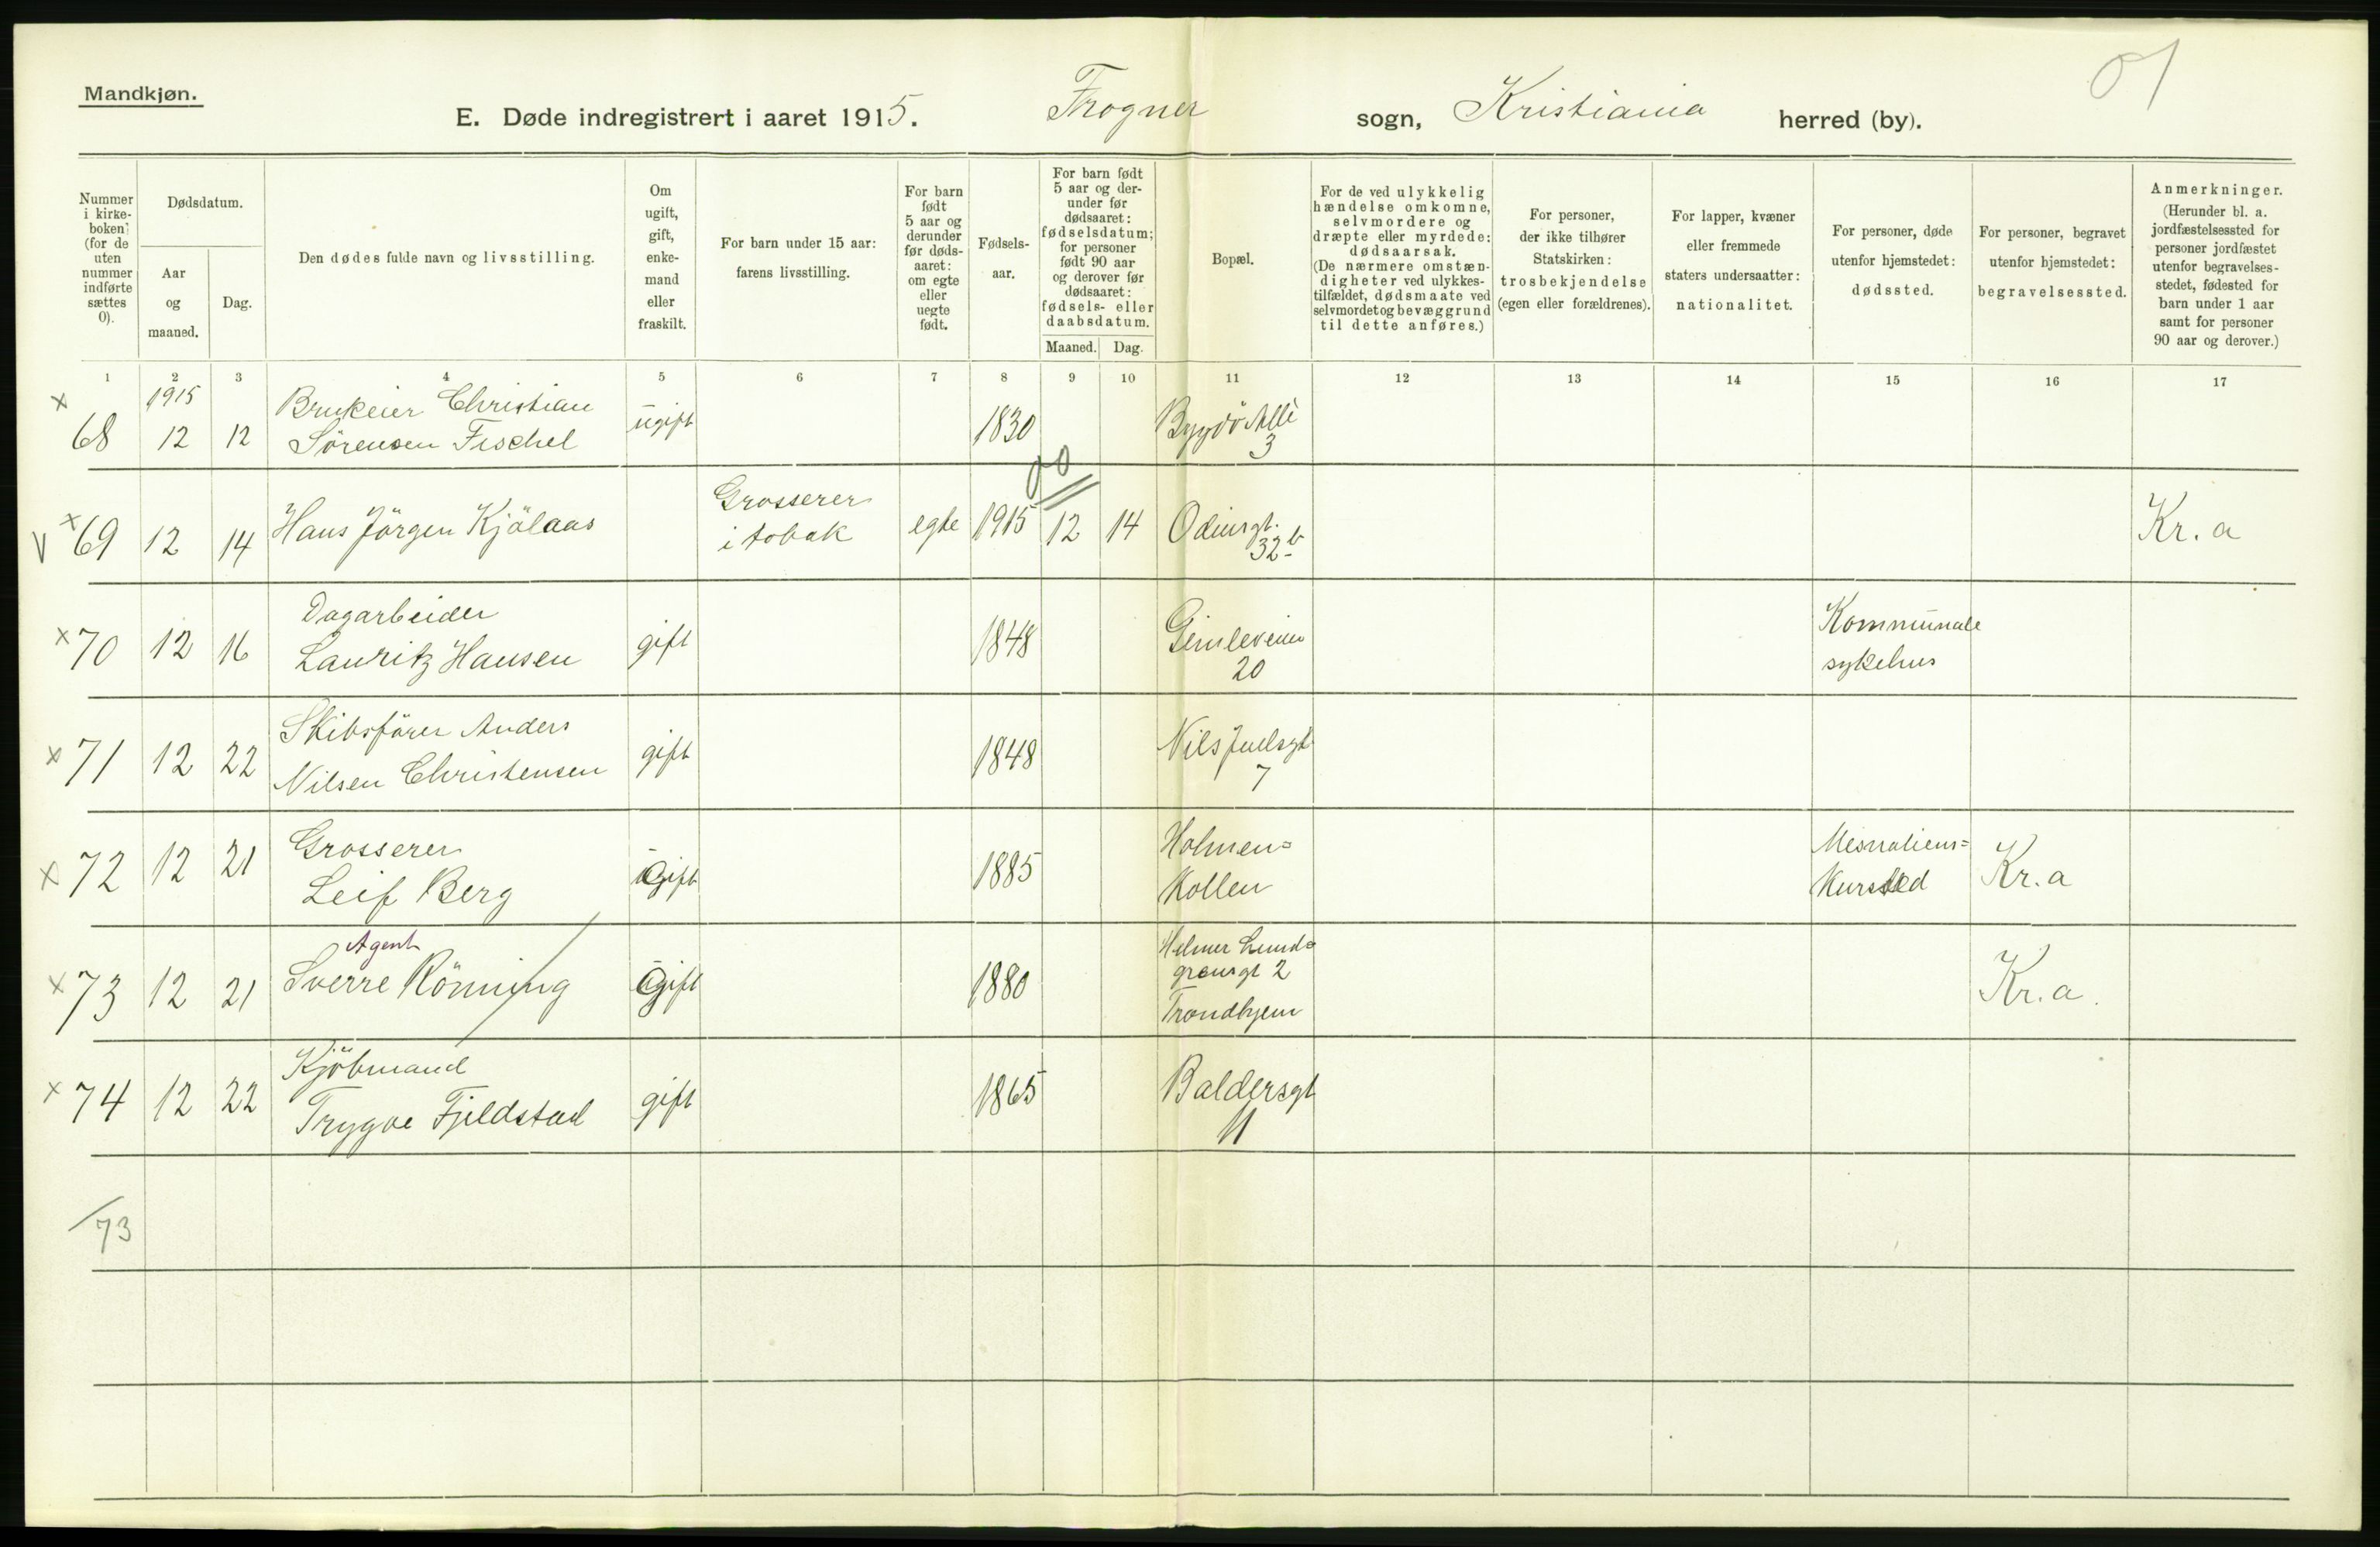 01
Mandkjøn.
E. Døde indregistrert i aaret 1915. Frogner sogn, Kristiania herred (by).
Nummer i kirke-boken (for de uten nummer indførte sættes 0).
Dødsdatum.
Aar og maaned.
Dag.
Den dødes fulde navn og livsstilling.
Om ugift, gift, enke-mand eller fraskilt.
For barn under 15 aar: farens livsstilling.
For barn født 5 aar og derunder før døds-aaret: om egte eller uegte født.
Fødsels-aar.
For barn født 5 aar og der-under før dødsaaret: fødselsdatum; for personer født 90 aar og derover før dødsaaret: fødsels- eller daabsdatum.
Maaned. Dag.
Bopæl.
For de ved ulykkelig hændelse omkomne, selvmordere og dræpte eller myrdede: dødsaarsak. (De nærmere omstæn-digheter ved ulykkes-tilfældet, dødsmaate ved selvmordet og bevæggrund til dette anføres.)
For personer, der ikke tilhører Statskirken: trosbekjendelse (egen eller forældrenes).
For lapper, kvæner eller fremmede staters undersaatter: nationalitet.
For personer, døde utenfor hjemstedet: dødssted.
For personer, begravet utenfor hjemstedet: begravelsessted.
Anmerkninger. (Herunder bl. a. jordfæstelsessted for personer jordfæstet utenfor begravelses-stedet, fødested for barn under 1 aar samt for personer 90 aar og derover.)
1 2 3 4 5 6 7 8 9 10 11 12 13 14 15 16 17
1915
x 68 12 12 Brukeier Christian Sörensen Fischel ugift 1830 Bygdö Allè 3
00
V x 69 12 14 Hans Jörgen Kjölaas Grosserer i tobak egte 1915 12 14 Odinsgt. 32 b Kr. a
x 70 12 16 Dagarbeider Lauritz Hansen gift 1848 Gimleveien 20 Kommunale sykehus
x 71 12 22 Skibsförer Anders Nilsen Christensen gift 1848 Nils Juelsgt 7
x 72 12 21 Grosserer Leif Berg ugift 1885 Holmen= Kollen Mesnaliens= Kursted Kr. a
x 73 12 21 Agent Sverre Rönning Gift 1880 Helmer Lund= grensgt 2 Trondhjem Kr. a.
x 74 12 22 Kjöbmand Trygve Fjeldstad gift 1865 Baldersgt 11
/73